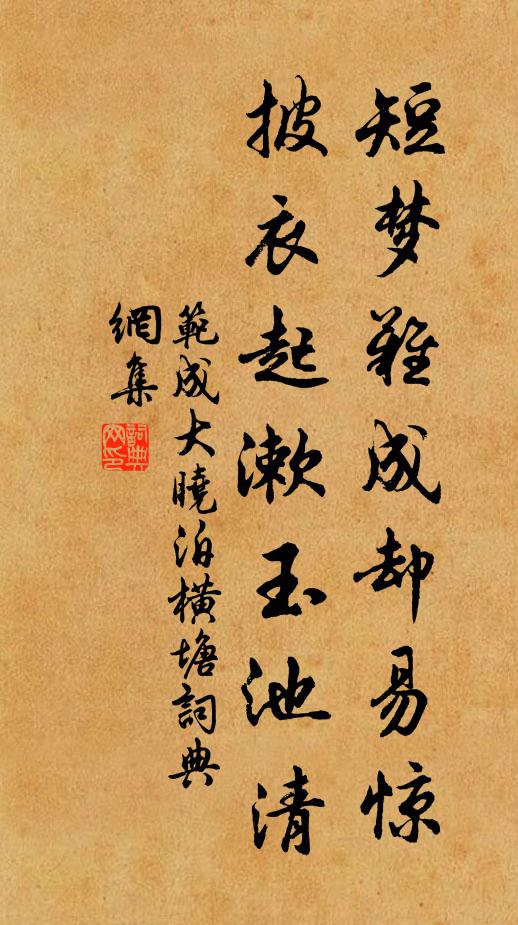 短梦難成却易惊
披衣起漱玉池清
範成大曉泊橫塘詞典
網集
詞典网印